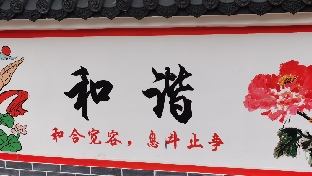 和谐
和合宽容，息斗止争